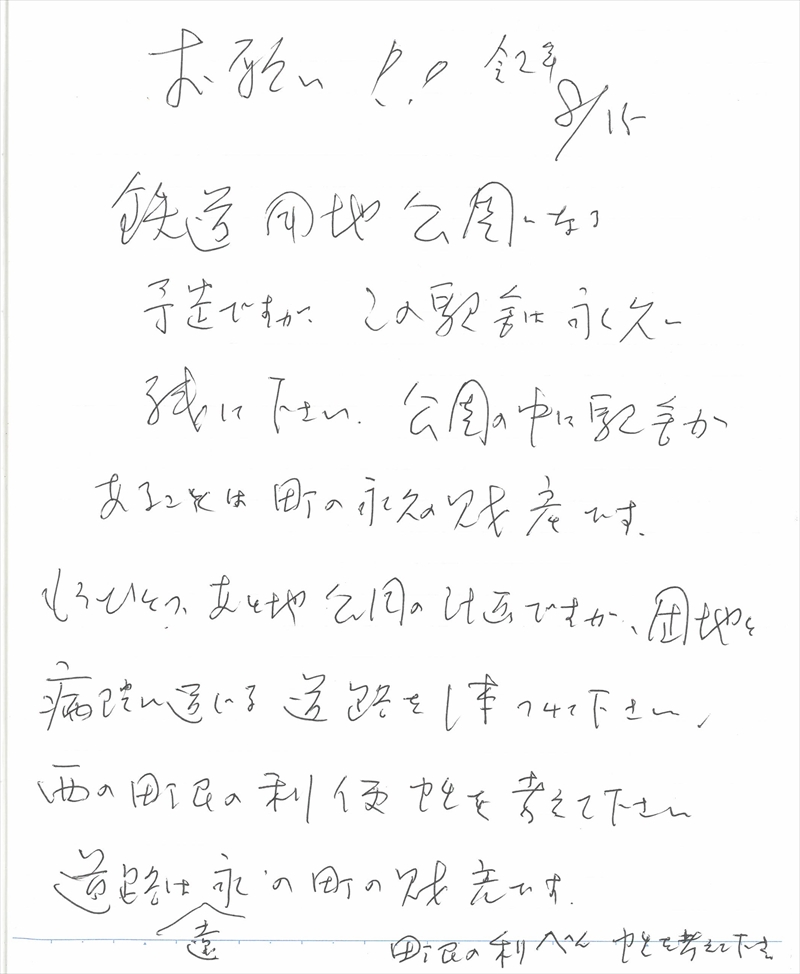 お願い!! 令2年
8/15
鉄道用地公園になる
予定ですが、この駅舎は永久に
残して下さい。公園の中に駅舎が
あることは町の永久の財産です。
もうひとつ、あと地公園の計画ですが、団地と
病院に通じる道路を1本つけて下さい、
西の町民の利便性を考えて下さい
道路は永遠の町の財産です。
町民の利べん性を考えて下さ